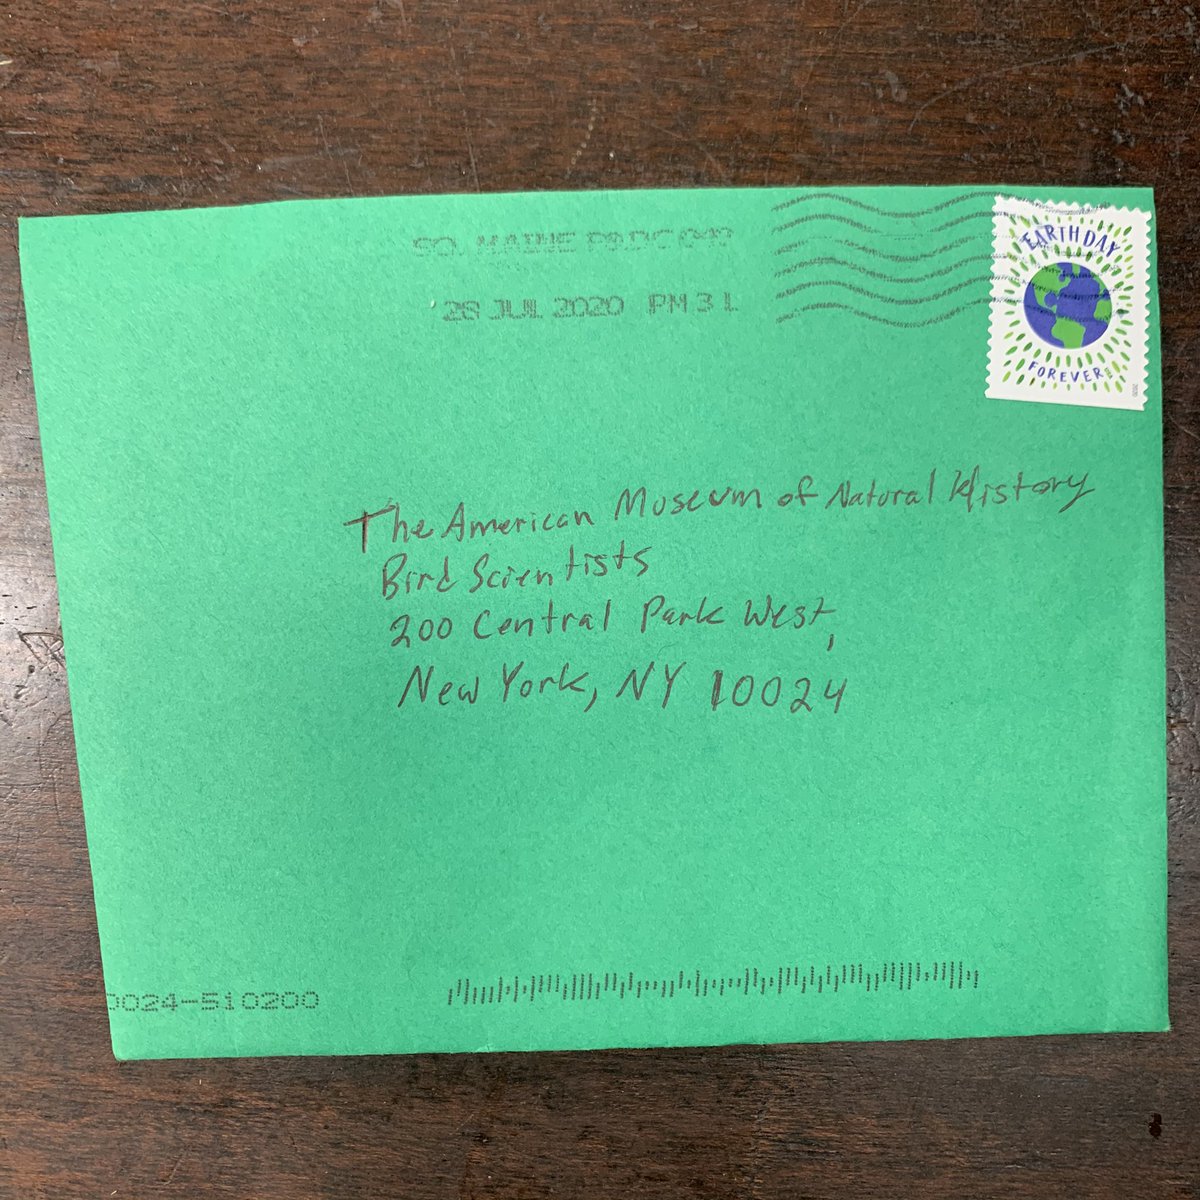 SO. MAINE P&DC
28 JUL 2020 PM 3 L
EARTH DAY
FOREVER
2020
The American Museum of Natural History
Bird Scientists
200 Central Park West,
New York, NY 10024
0024-510200